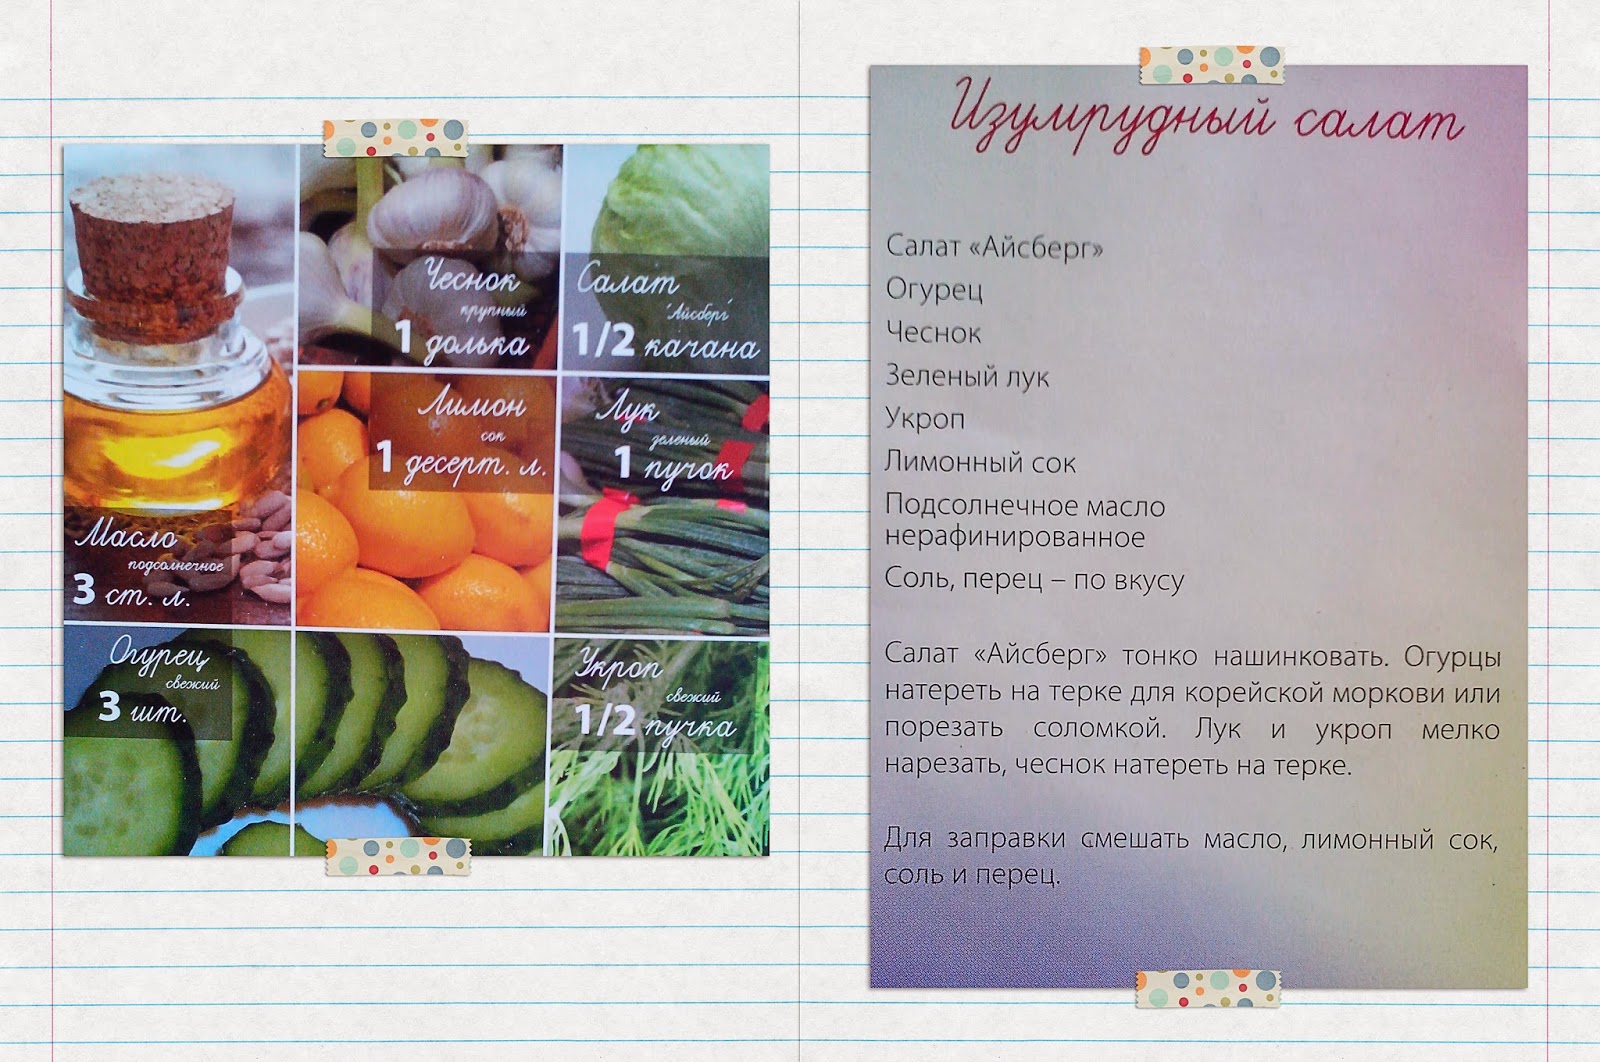 Чеснок
крупный
1 долька
Салат
"Айсберг"
1/2 качана
Лимон
сок
1 десерт. л.
Лук
зеленый
1 пучок
Масло
подсолнечное
3 ст. л.
Огурец
свежий
3 шт.
Укроп
свежий
1/2 пучка
Изумрудный салат
Салат «Айсберг»
Огурец
Чеснок
Зеленый лук
Укроп
Лимонный сок
Подсолнечное масло
нерафинированное
Соль, перец – по вкусу
Салат «Айсберг» тонко нашинковать. Огурцы
натереть на терке для корейской моркови или
порезать соломкой. Лук и укроп мелко
нарезать, чеснок натереть на терке.
Для заправки смешать масло, лимонный сок,
соль и перец.